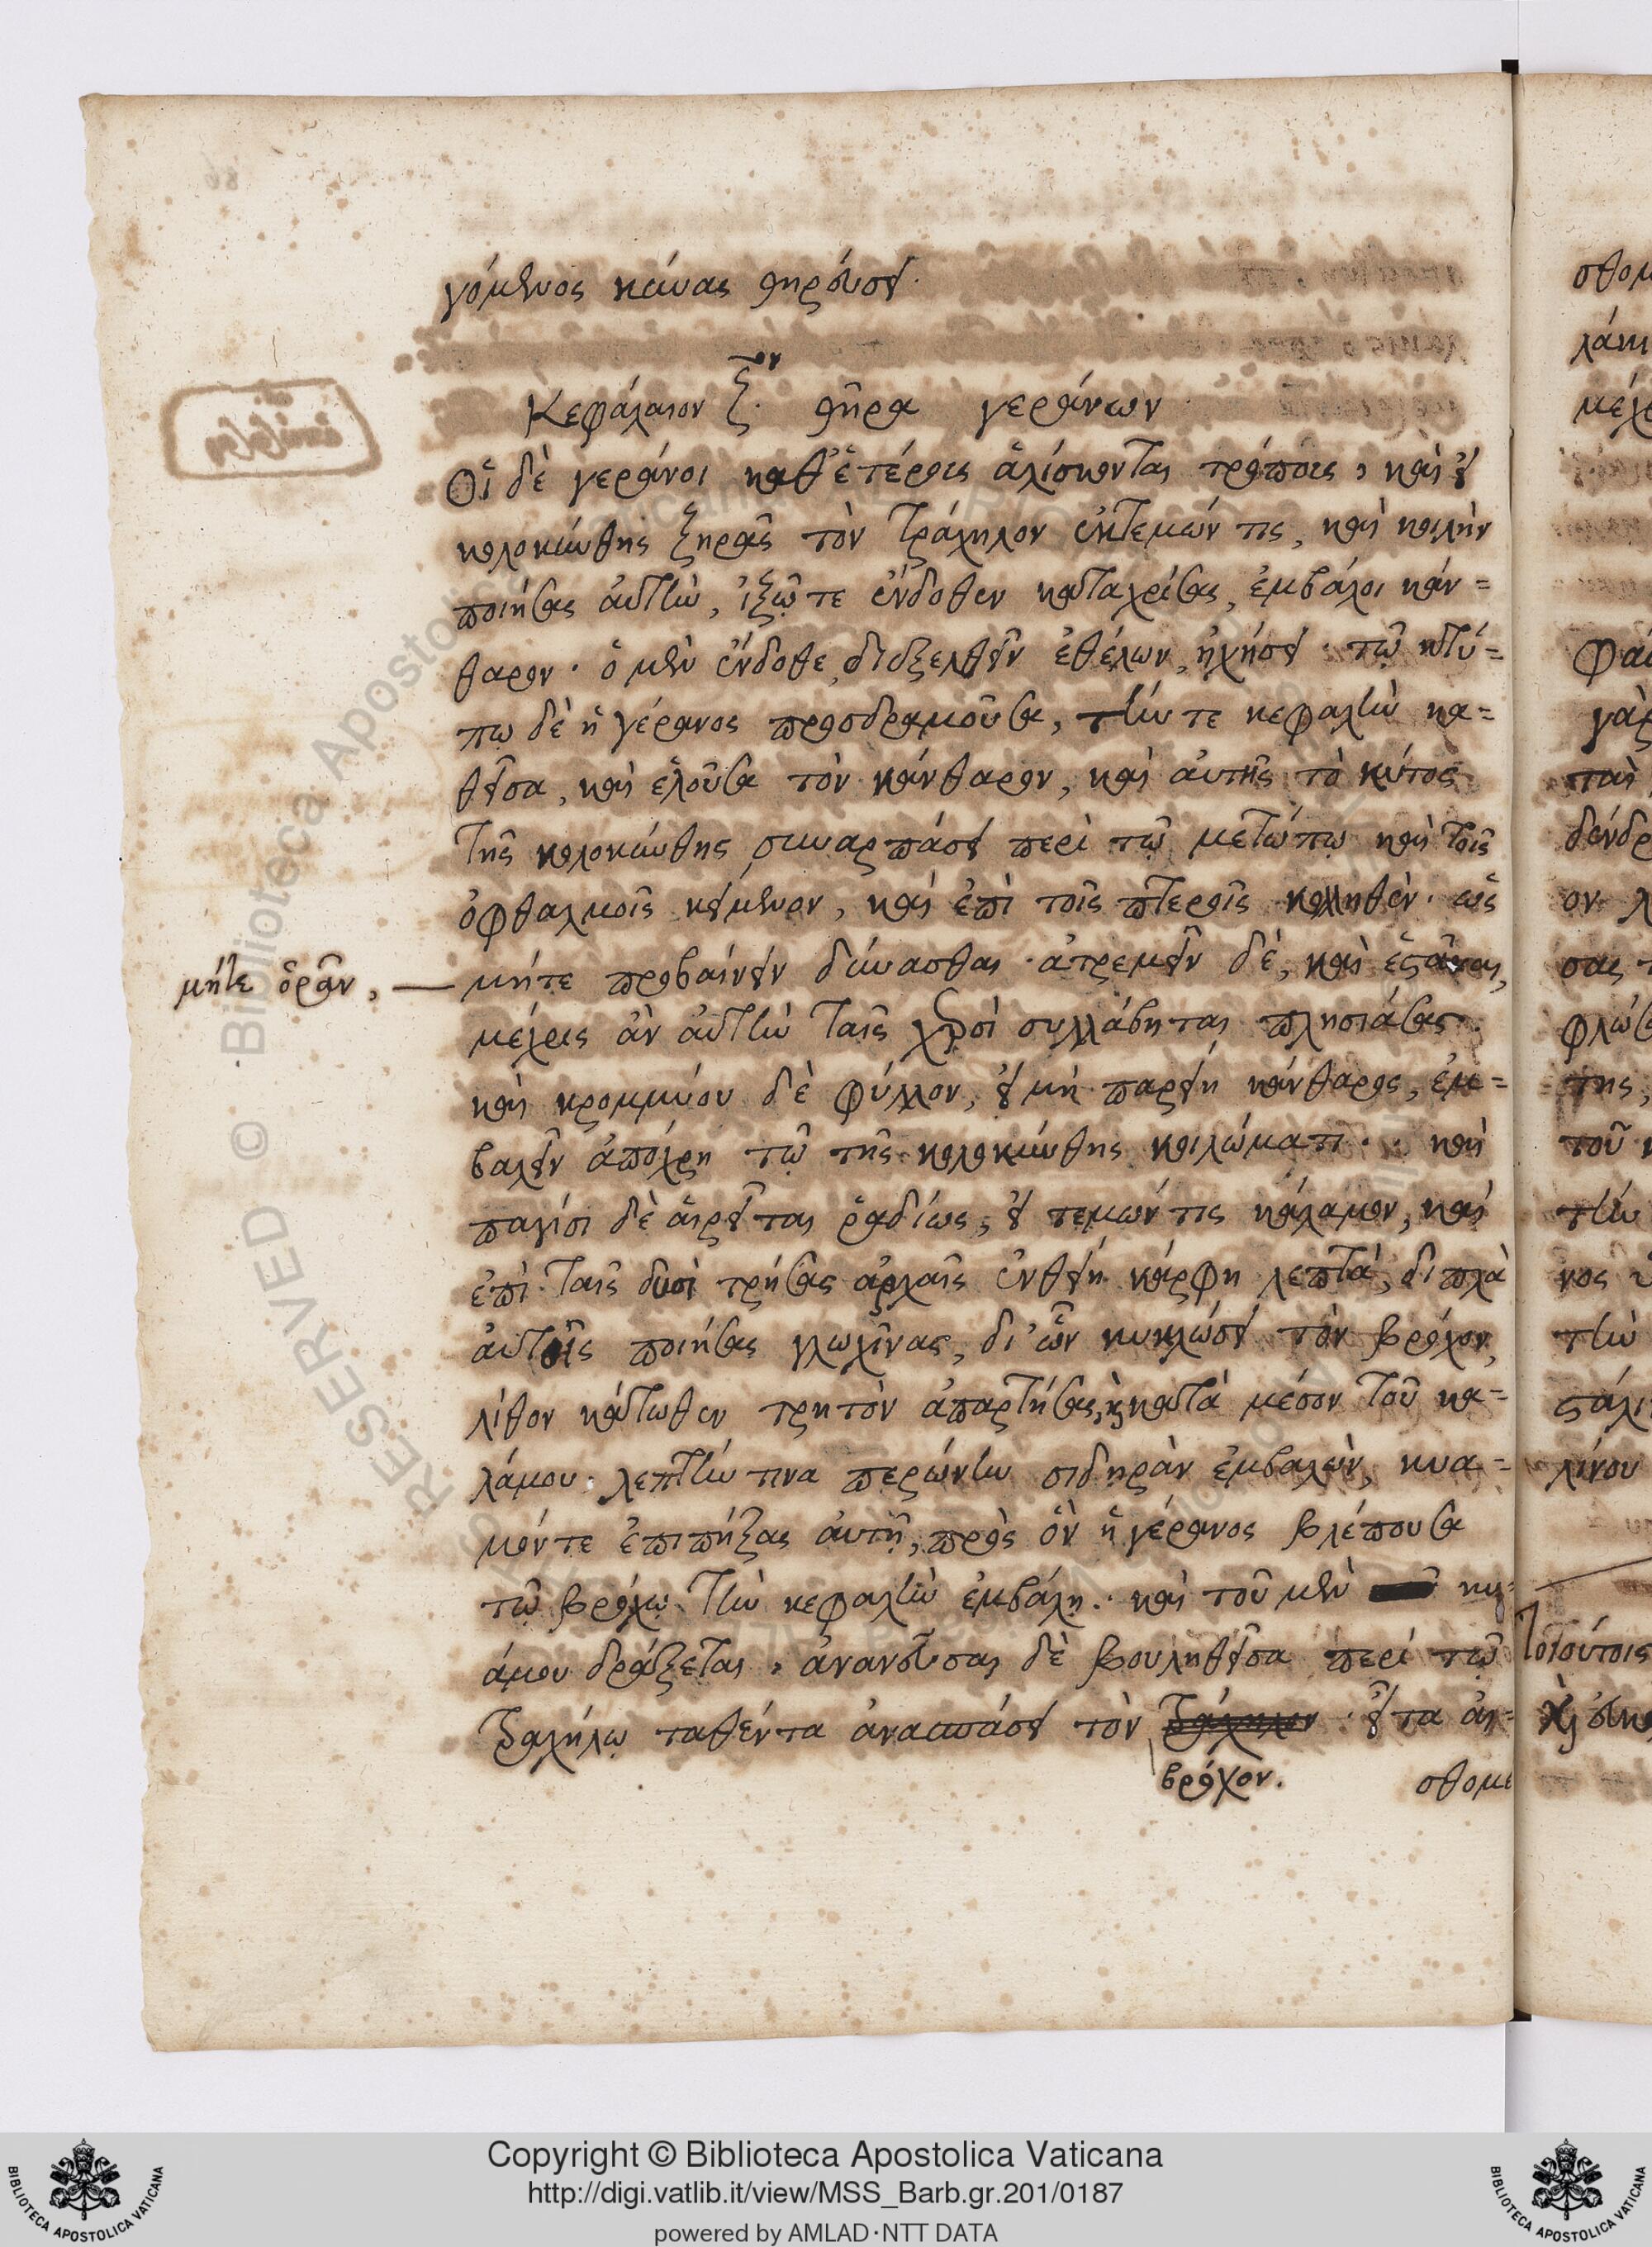 γόμενος πάσας θηράσει.
Κεφάλαιον ζον. θῆρα γεράνων.
Οἱ δὲ γεράνοι καθ' ἑτέροις ἁλίσκονται τρόποις, καὶ εἰ
κολοκύνθης ξηρᾶς τὸν τράχηλον ἐκτεμών τις, καὶ κοιλὴν
ποιήσας αὐτὴν, ἰξῷ τε ἔνδοθεν καταχρίσας, ἐμβάλοι κάν=
θαρον. ὁ μὲν ἔνδοθε, διεξελθεῖν ἐθέλων, ἠχήσει. τῷ κτύ=
πῳ δὲ ἡ γέρανος προσδραμοῦσα, τήν τε κεφαλὴν κα=
θεῖσα, καὶ ἑλοῦσα τὸν κάνθαρον, καὶ αὐτῆς τὸ κύτος
τῆς κολοκύνθης συναρπάσει περὶ τῷ μετώπῳ καὶ τοῖς
ὀφθαλμοῖς κείμενον, καὶ ἐπὶ τοῖς πτεροῖς κολληθὲν. ὡς
μήτε ὁρᾶν, — μήτε προβαίνειν δύνασθαι. ἀτρεμεῖν δὲ, καὶ ἑστάναι,
μέχρις ἂν αὐτὴν ταῖς χερσὶ συλλάβηται πλησιάσας.
καὶ κρομμύου δὲ φύλλον, εἰ μὴ παρείη κάνθαρος, ἐμ=
βαλεῖν ἀπόχρη τῷ τῆς κολοκύνθης κοιλώματι. καὶ
παγίσι δὲ αἱρεῖται ῥᾳδίως, εἰ τεμών τις κάλαμον, καὶ
ἐπὶ ταῖς δυσὶ τρήσας ἀρχαῖς ἐνθείη κάρφη λεπτὰ, διπλὰ
αὐτοῖς ποιήσας γλωχῖνας, δι' ὧν κυκλώσει τὸν βρόχον,
λίθον κάτωθεν τρητὸν ἀπαρτήσας, καὶ κατὰ μέσον τοῦ κα=
λάμου λεπτήν τινα περώνην σιδηρὰν ἐμβαλὼν, κυα=
μόν τε ἐπιπήξας αὐτῇ, πρὸς ὃν ἡ γέρανος βλέπουσα
τῷ βρόχῳ τὴν κεφαλὴν ἐμβάλῃ. καὶ τοῦ μὲν κυ=
άμου δράξεται, ἀνανεῦσαι δὲ βουληθεῖσα περὶ τῷ
τραχήλῳ ταθέντα ἀνασπάσει τὸν τράχηλον. εἶτα αἰ=
βρόχον.
σθομε